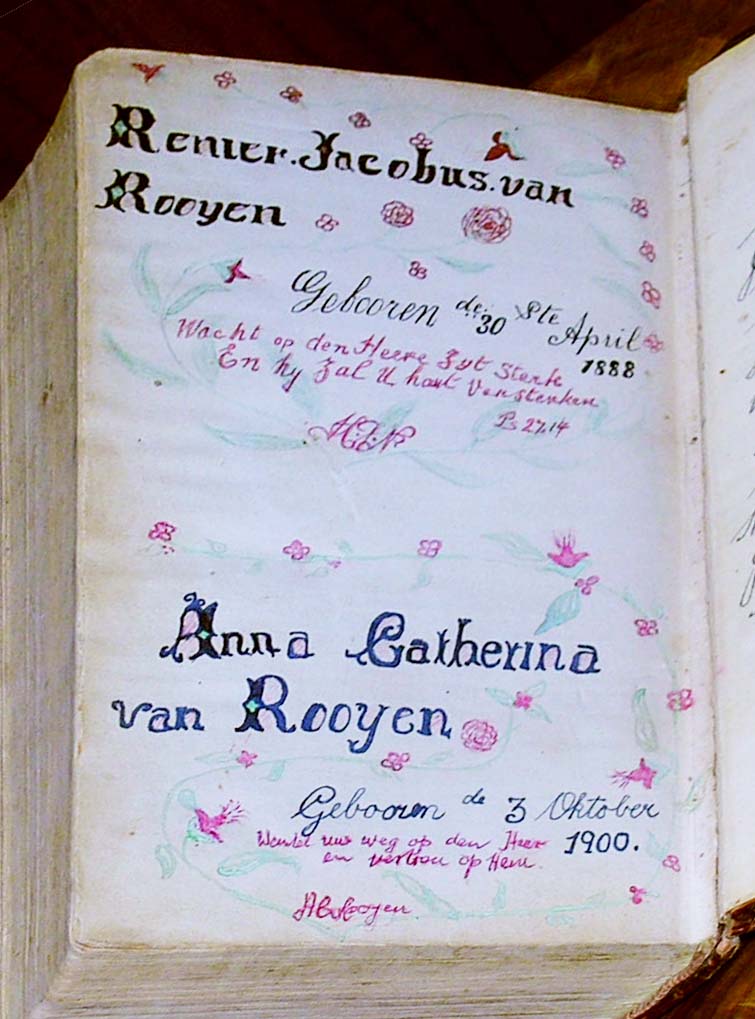 Renier. Jacobus. van
Rooyen
Gebooren de 30 Ste April
1888
Wacht op den Heere Zyt Sterk
En hy Zal U hart Versterken
Ps 27.14
Anna Catherina
van Rooyen
Gebooren de 3 Oktober
1900.
Wentel uws weg op den Heer
en vertrou op Hem.